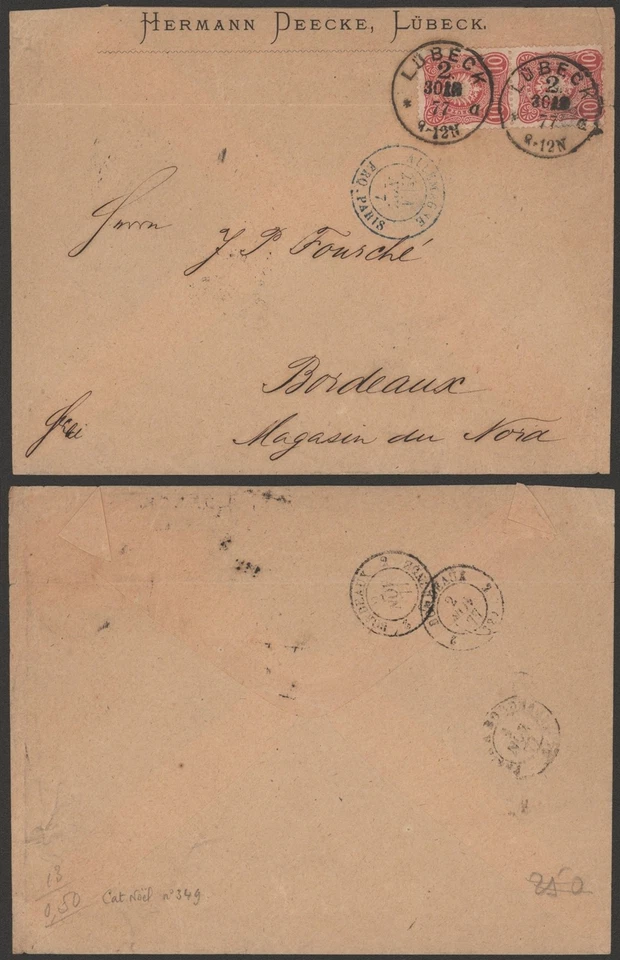 HERMANN DEECKE, LÜBECK.
LÜBECK
2
30 10
77 a
9-12N
10
LÜBECK
2
30 10
77 a
9-12N
10
ALLEMAGNE
77
ERQ. PARIS
Herrn
J. P. Fourché
Bordeaux
Frei
Magasin du Nord
BORDEAUX 2
NOV
BORDEAUX 2
2
NOV
77
18
0,50
Cat. Noël n° 349
250